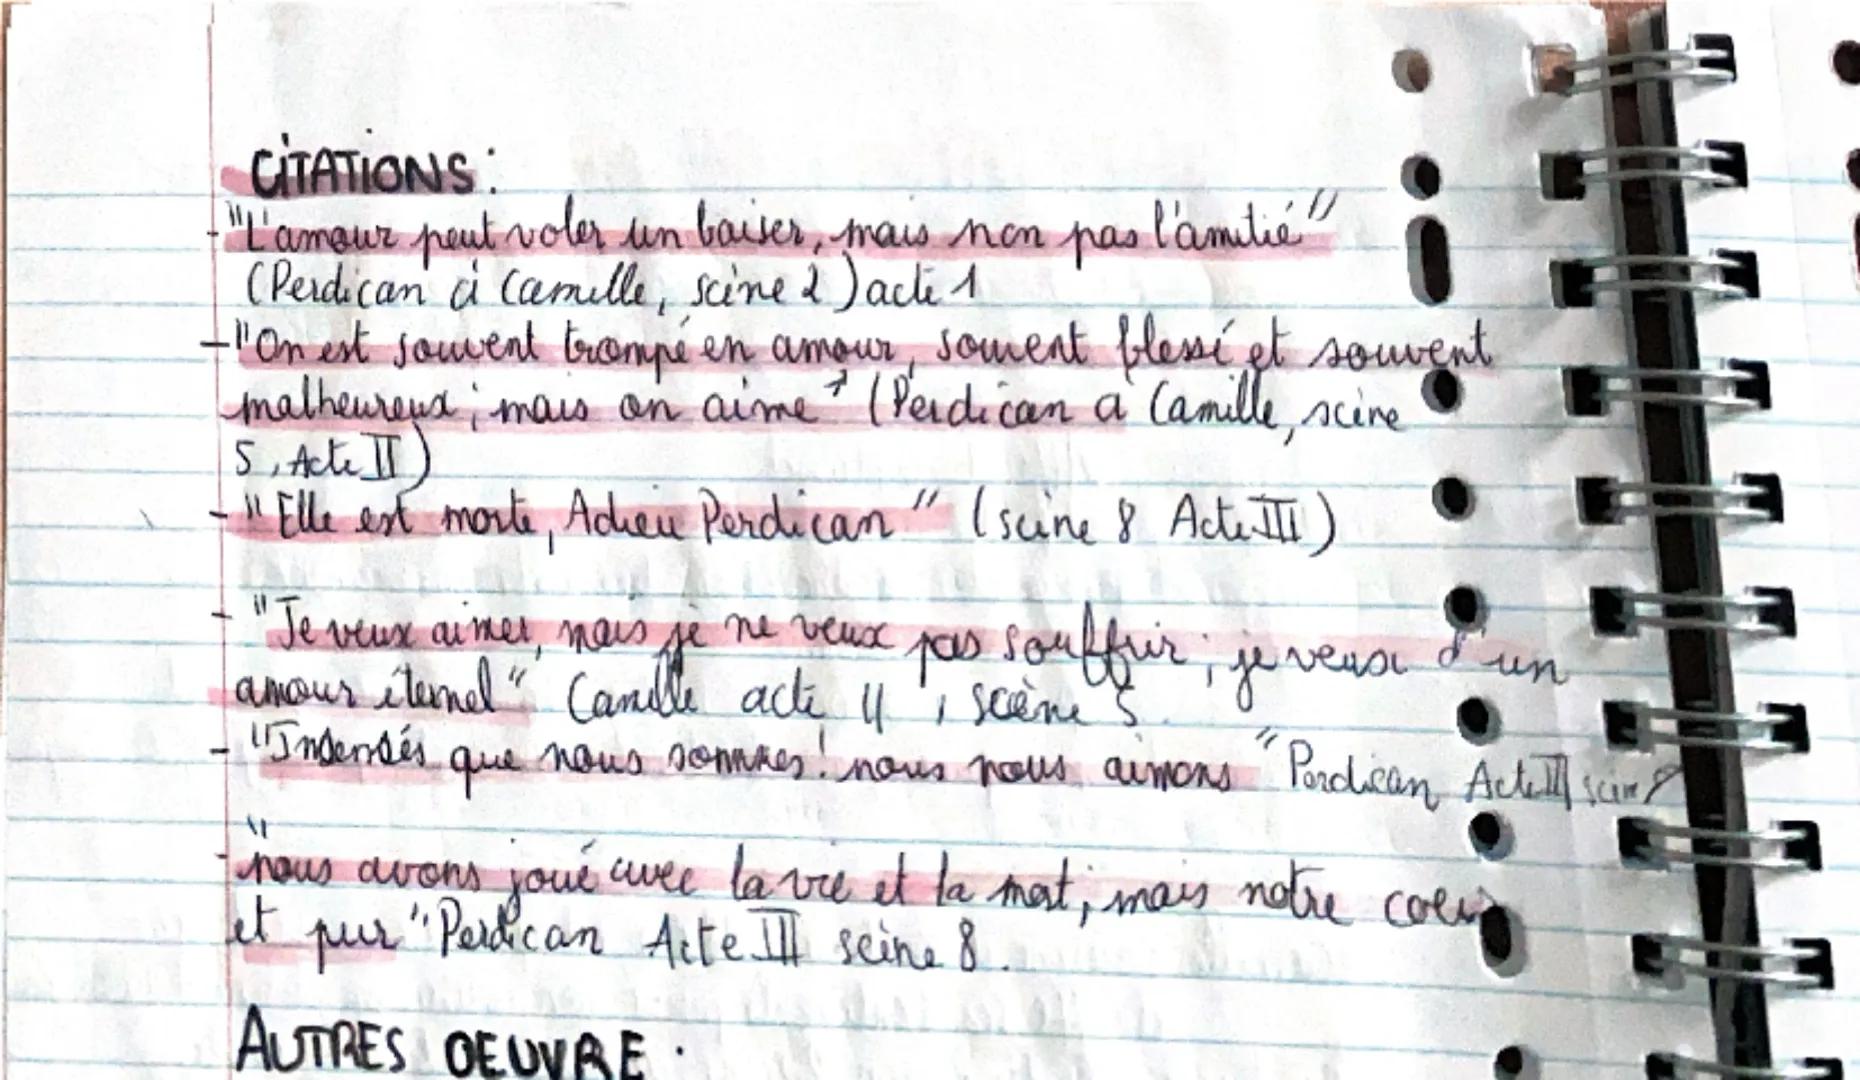 CITATIONS:
- "L'amour peut voler un baiser, mais non pas l'amitié"
(Perdican à Camille, scène 2) acte 1
- "On est souvent trompé en amour, souvent blessé et souvent
malheureux; mais on aime" (Perdican à Camille, scène
5, Acte II)
- "Elle est morte, Adieu Perdican" (scène 8 Acte III)
- "Je veux aimer, mais je ne veux pas souffrir; je veux d'un
amour éternel" Camille acte II, scène 5.
- "Insensés que nous sommes! nous nous aimons" Perdican Acte III scène 8
- "nous avons joué avec la vie et la mort; mais notre coeur
et pur" Perdican Acte III scène 8.
AUTRES OEUVRE: